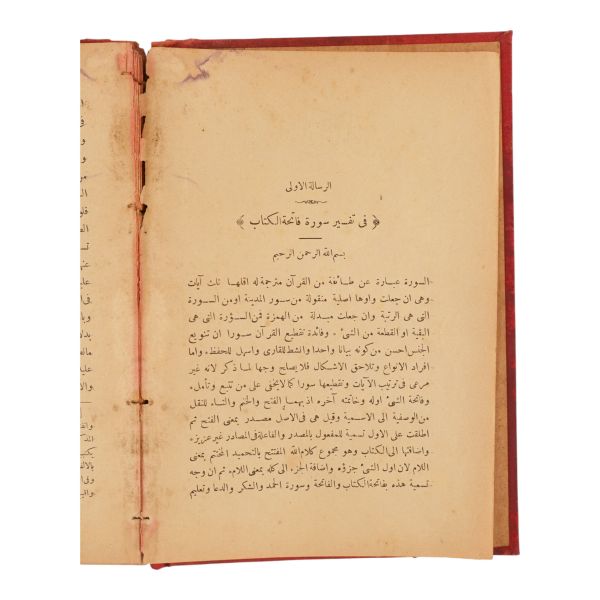 الرسالة الاولى
﴿ فى تفسير سورة فاتحة الكتاب ﴾
بسم الله الرحمن الرحيم
السورة عبارة عن طائفة من القرآن مترجمة له اقلها ثلث آيات
وهى ان جعلت واوها اصلية منقولة من سور المدينة اومن السورة
التى هى الرتبة وان جعلت مبدلة من الهمزة فمن السؤرة التى هى
البقية او القطعة من الشئ * وفائدة تقطيع القرآن سورا ان تنويع
الجنس احسن من كونه بيانا واحدا وانشط للقارى واسهل للحفظ * واما
افراد الانواع وتلاحق الاشكال فلا يصلح وجها لما ذكر لانه غير
مرعى فى ترتيب الآيات وتقطيعها سورا كما لا يخفى على من تتبع وتأمل *
وفاتحة الشئ اوله وخاتمته آخره اذ بهما الفتح والختم والتاء للنقل
من الوصفية الى الاسمية وقيل هى فى الاصل مصدر بمعنى الفتح ثم
اطلقت على الاول تسمية للمفعول بالمصدر والفاعلة فى المصادر غير عزيز *
واضافتها الى الكتاب وهو مجموع كلام الله المفتتح بالتحميد المختتم بمعنى
اللام لان اول الشئ جزؤه * واضافة الجزء الى كله بمعنى اللام * ثم ان وجه
تسمية هذه بفاتحة الكتاب والفاتحة وسورة الحمد والشكر والدعا وتعليم